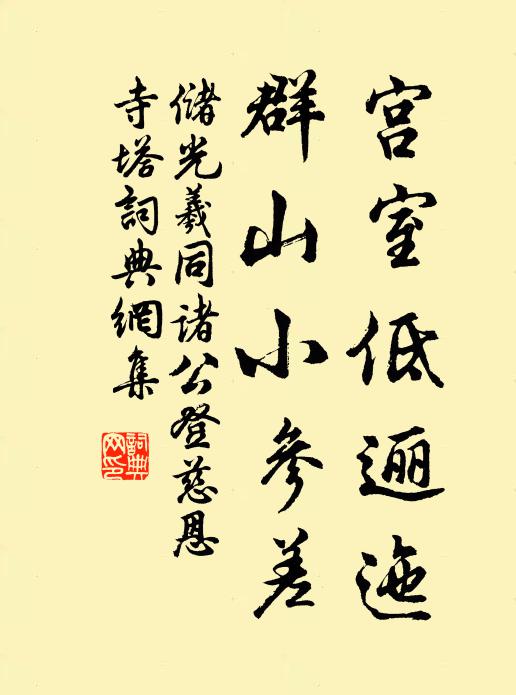 宫室低逦迤
群山小参差
儲光羲同諸公登慈恩
寺塔詞典網集
詞典
网印